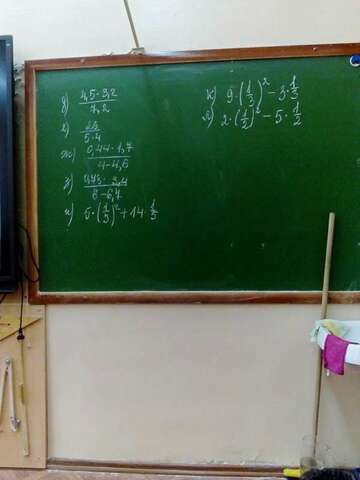 д) 4,5·3,2 / 7,2
е) 2,5 / 5·4
ж) 0,44·1,7 / 4-4,6
з) 0,75·3,4 / 6-6,7
и) 5·(1/5)² + 14·1/5
к) 9·(1/3)² - 3·1/3
л) 2·(1/2)² - 5·1/2